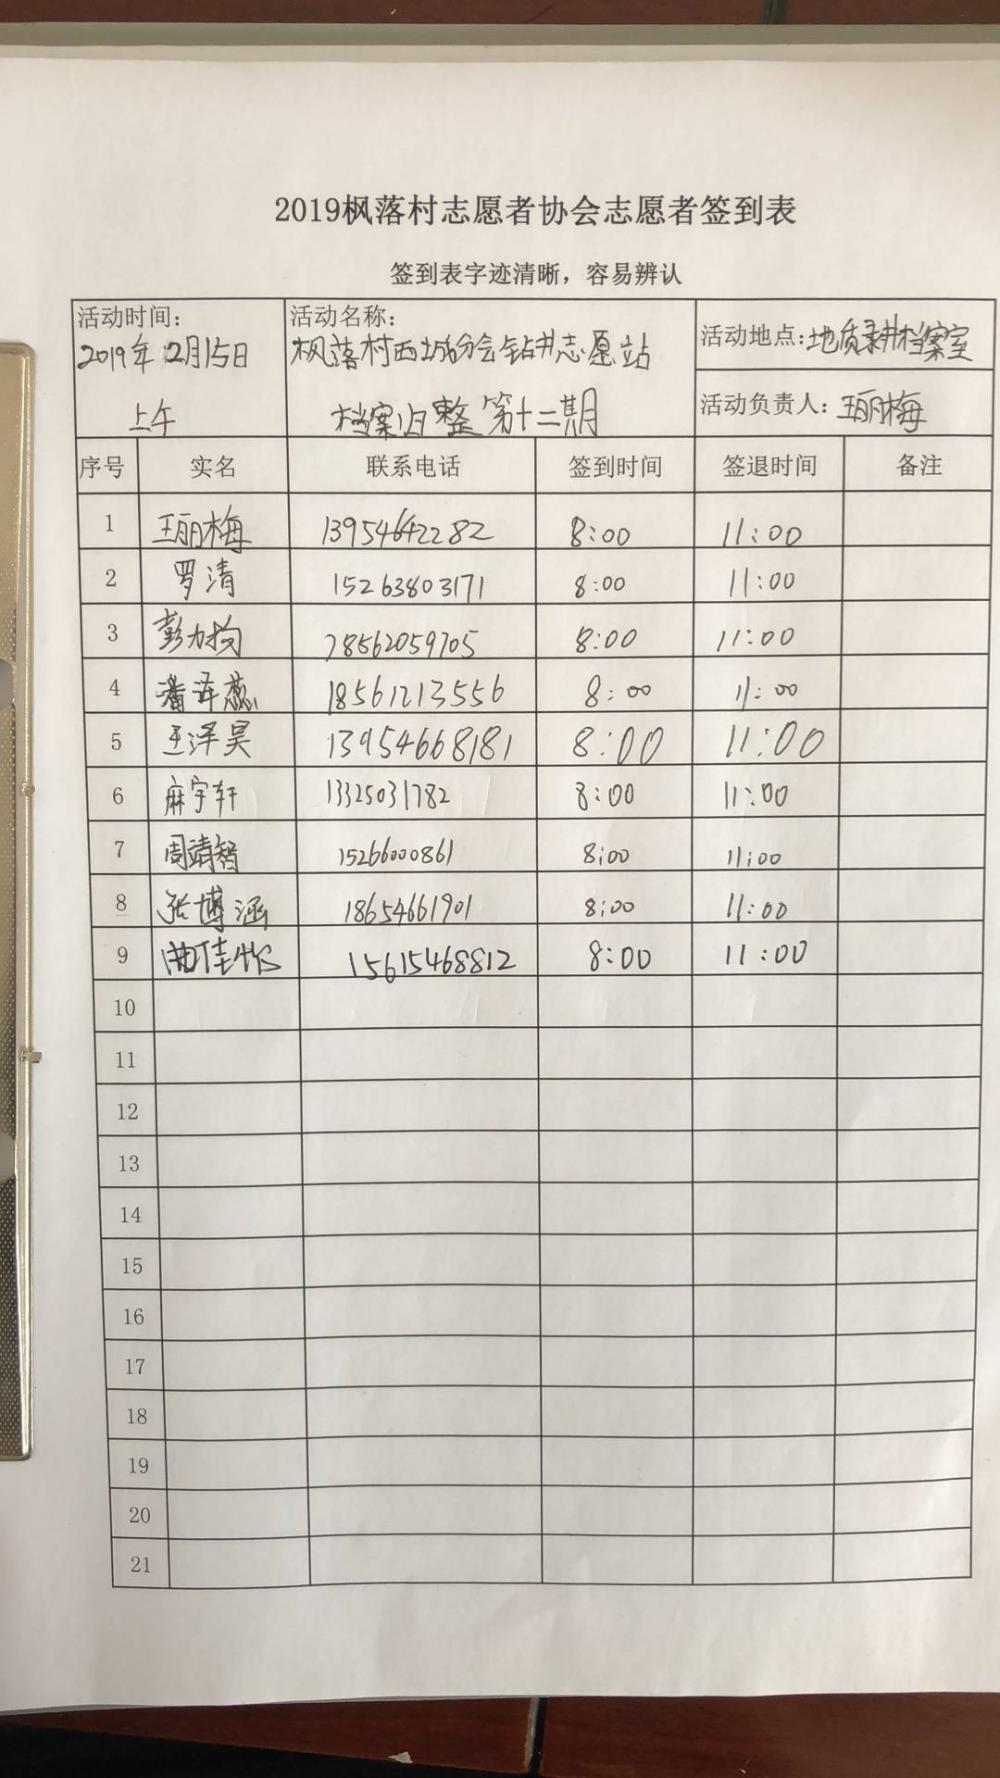 2019枫落村志愿者协会志愿者签到表
签到表字迹清晰，容易辨认
活动时间：
2019年2月15日
上午
活动名称：
枫落村西城分会钻井志愿站
档案归整 第十二期
活动地点：地质录井档案室
活动负责人：王丽梅
序号 实名 联系电话 签到时间 签退时间 备注
1 王丽梅 13954642282 8:00 11:00
2 罗清 15263803171 8:00 11:00
3 彭力 78562059705 8:00 11:00
4 潘 蕊 18561213556 8:00 11:00
5 王泽昊 13954668181 8:00 11:00
6 麻宇轩 13325031782 8:00 11:00
7 周靖智 15266000861 8:00 11:00
8 张博涵 18654661901 8:00 11:00
9 曲佳怡 15615468812 8:00 11:00
10
11
12
13
14
15
16
17
18
19
20
21